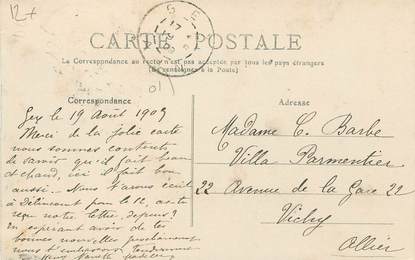 12+
CARTE POSTALE
La Correspondance au recto n'est pas acceptée par tous les pays étrangers
(Se renseigner à la Poste)
Correspondance
Gex le 19 Août 1909
Merci de la jolie carte
nous sommes contents
de savoir qu'il fait beau
et chaud, ici il fait bon
aussi. Nous t'avons écrit
à pour le 12, as-tu
reçu notre lettre, depuis?
en espérant avoir de tes
bonnes nouvelles prochainement
nous t'embrassons tendrement
Adresse
Madame C. Barbe
Villa Parmentier
22 Avenue de la Gare 22
Vichy
Allier